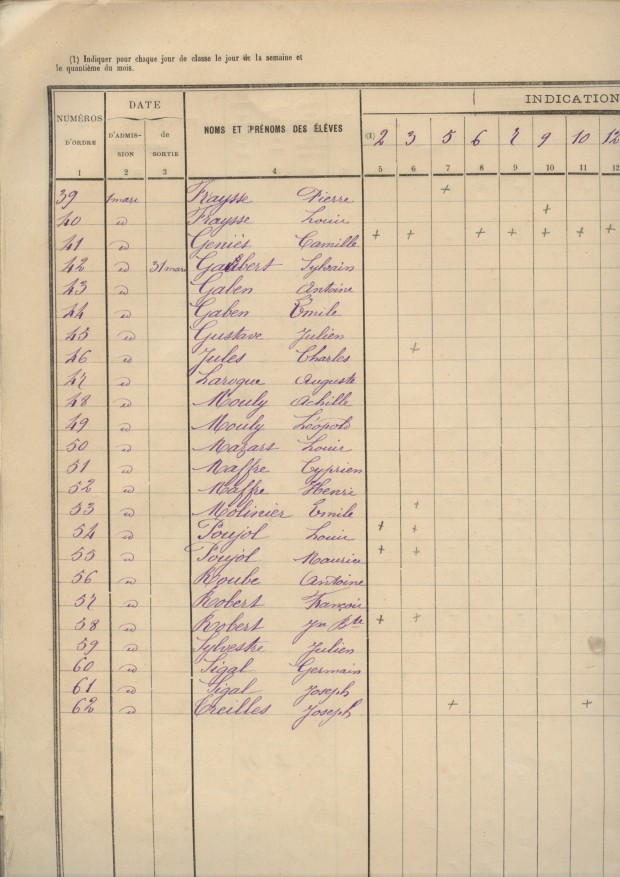 (1) Indiquer pour chaque jour de classe le jour de la semaine et
le quantième du mois.
NUMÉROS D'ORDRE DATE NOMS ET PRÉNOMS DES ÉLÈVES INDICATION
D'ADMISSION de SORTIE (1) 2 3 5 6 7 9 10 12
1 2 3 4 5 6 7 8 9 10 11 12
39 1 mars Fraysse Pierre +
40 " Fraysse Louis +
41 " Geniès Camille + + + + + + +
42 " 31 mars Galibert Sylvain
43 " Gaben Antoine
44 " Gaben Emile
45 " Gustave Julien
46 " Jules Charles +
47 " Laroque Auguste
48 " Mouly Achille
49 " Mouly Léopold
50 " Mazars Louis
51 " Maffre Cyprien
52 " Maffre Henri
53 " Molinier Emile +
54 " Poujol Louis + +
55 " Poujol Maurice + +
56 " Roube Antoine
57 " Robert François
58 " Robert Jn Bte + +
59 " Sylvestre Julien
60 " Sigal Germain
61 " Sigal Joseph
62 " Creilles Joseph + +